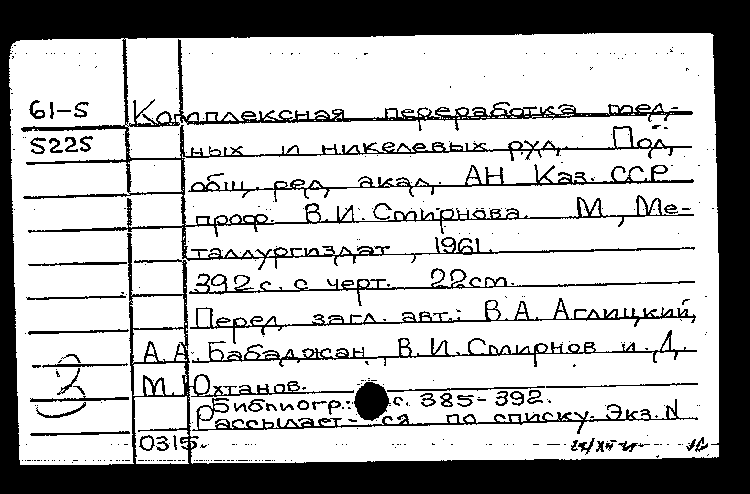 61-5 Комплексная переработка мед-
5225 ных и никелевых руд. Под
общ. ред. акад. АН Каз. ССР
проф. В.И. Смирнова. М., Ме-
таллургиздат, 1961.
392 с. с черт. 22 см.
Перед загл. авт.: В.А. Аглицкий,
А.А. Бабаджан, В.И. Смирнов и Д.
М. Юхтанов.
Библиогр.: с. 385-392.
Рассылает-ся по списку. Экз. N
0315.